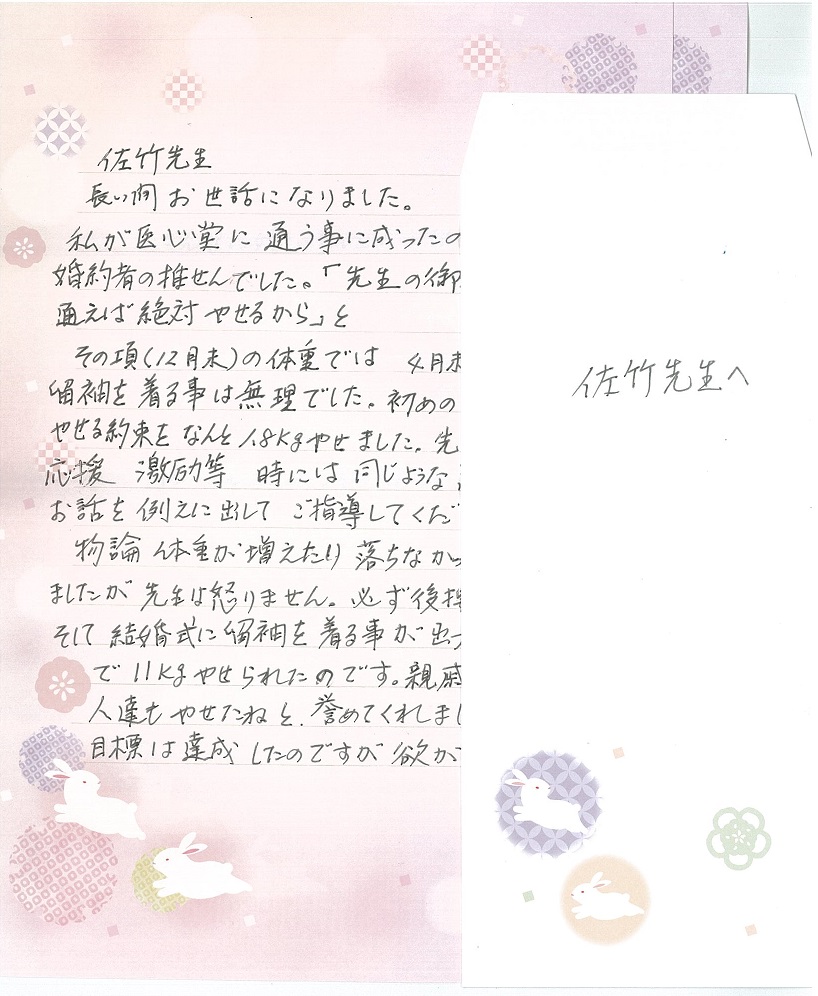 佐竹先生
長い間お世話になりました。
私が医心堂に通う事に成ったの
婚約者の推せんでした。「先生の御
通えば絶対やせるから」と
その項(12月末)の体重では 4月末
留袖を着る事は無理でした。初めの
やせる約束をなんと1.8kgやせました。先
応援 激励等 時には同じような
お話を例えに出して ご指導してくだ
物論 体重が増えたり落ちなかっ
ましたが先生は怒りません。必ず後押
そして結婚式に留袖を着る事が出
で11kgやせられたのです。親戚
人達もやせたねと、誉めてくれまし
目標は達成したのですが欲が
佐竹先生へ